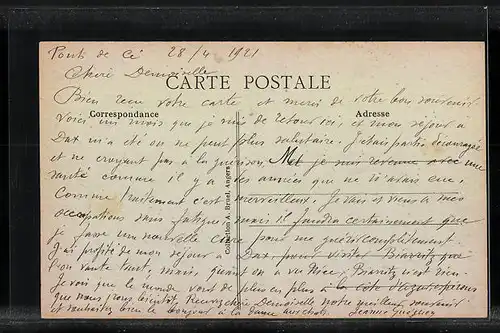 Ponts de Cé 28/4 1921
Chère Demoiselle
CARTE POSTALE
Bien reçu votre carte et merci de votre bon souvenir.
Correspondance
Adresse
Voici un mois que je suis de retour ici, et mon séjour à
Dax m'a été on ne peut plus salutaire. J'étais partie découragée
et ne croyant pas à la guérison. Met je suis revenue avec une
santé comme il y a des années que ne l'avais eue.
Comme traitement c'est merveilleux. Je vais et viens à mes
occupations sans fatigue, mais il faudra certainement que
je fasse une nouvelle cure pour me guérir complètement.
J'ai profité de mon séjour à Dax pour visiter Biarritz que
l'on vante tant, mais, quand on a vu Nice, Biarritz n'est rien.
Je vois que le monde vont de plus en plus à la côte d'Azur
que nous bientôt. Recevez chère Demoiselle notre meilleur souvenir
et souhaitez bien le bonjour à la dame aux chats. Jeanne
Collection A. Bruel, Angers